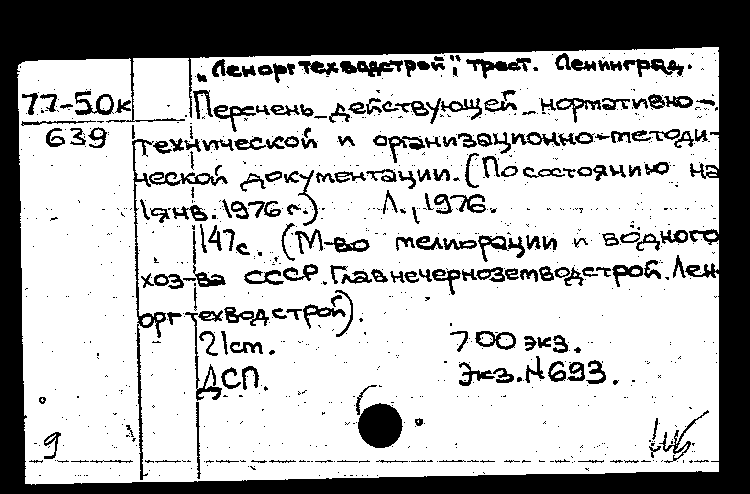 „Леноргтехводстрой", трест. Ленинград.
77-50к
639
Перечень действующей нормативно-
технической и организационно-методи-
ческой документации. (По состоянию на
1 янв. 1976 г.) Л., 1976.
147с. (М-во мелиорации и водного
хоз-ва СССР. Главнечерноземводстрой. Лен-
оргтехводстрой).
21 см. 700 экз.
ДСП. Экз. № 693.
9